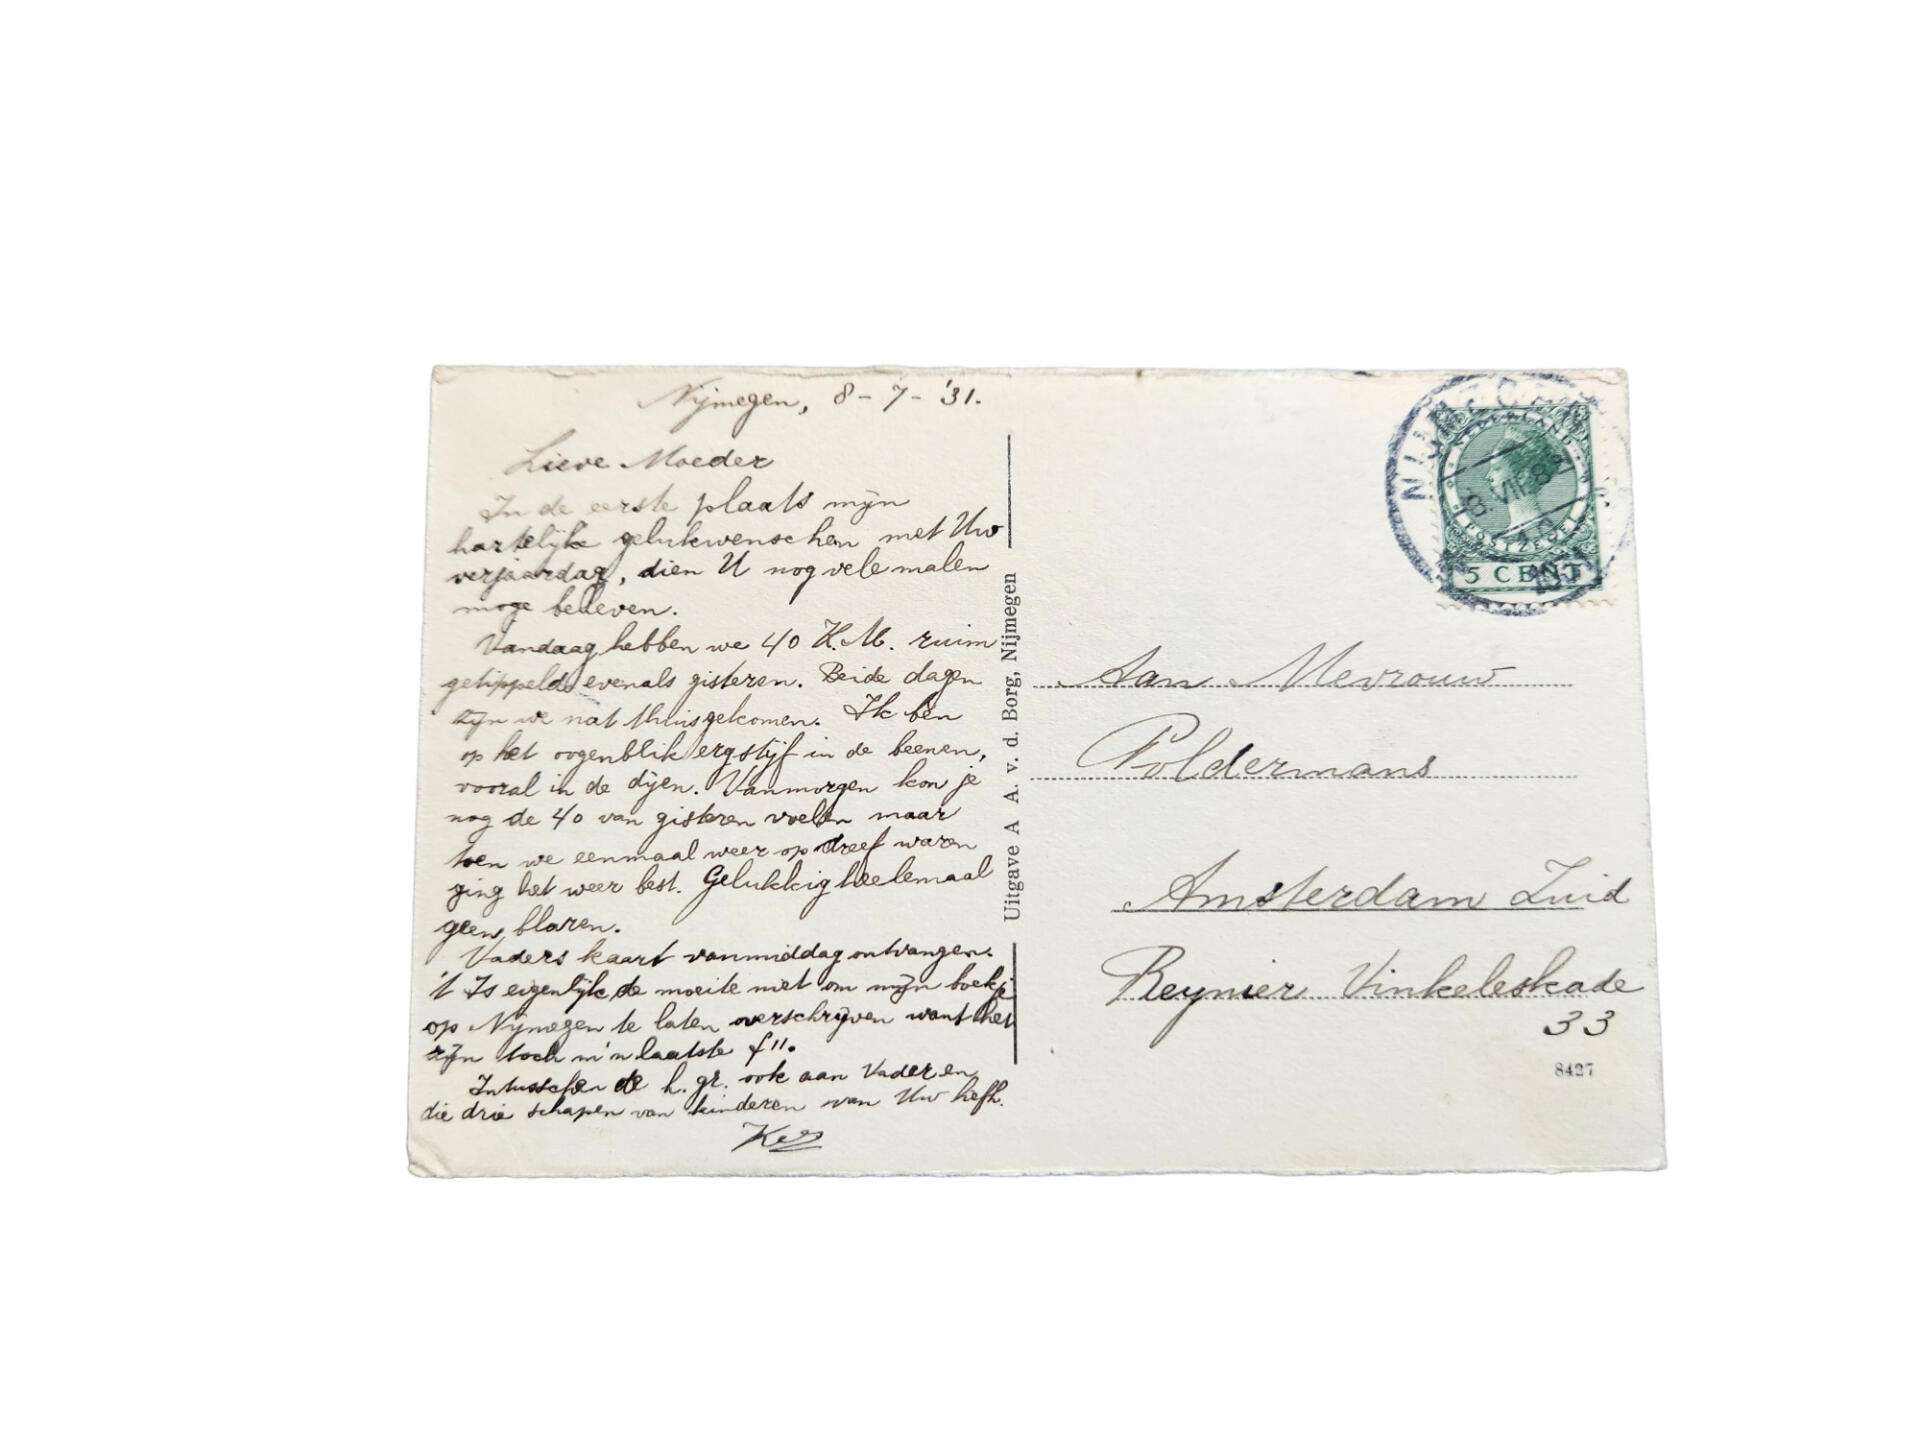 Nijmegen, 8 - 7 - '31.
Lieve Moeder
In de eerste plaats mijn
hartelijke gelukwenschen met Uw
verjaardag, dien U nog vele malen
moge beleven.
Vandaag hebben we 40 K.M. ruim
getippeld evenals gisteren. Beide dagen
zijn we nat thuisgekomen. Ik ben
op het oogenblik erg stijf in de beenen,
vooral in de dijen. Vanmorgen kon je
nog de 40 van gisteren voelen maar
toen we eenmaal weer op dreef waren
ging het weer best. Gelukkig heelemaal
geen blaren.
Vaders kaart vanmiddag ontvangen.
't Is eigenlijk de moeite niet om mijn boekje
op Nijmegen te laten overschrijven want het
zijn toch m'n laatste f11.
Intusschen de h. gr. ook aan Vader en
die drie schapen van kinderen van Uw liefh.
Kees
Uitgave A A. v. d. Borg, Nijmegen
NEDERLAND
POSTZEGEL
5 CENT
Aan Mevrouw
Poldermans
Amsterdam Zuid
Reynier Vinkeleskade
33
8427